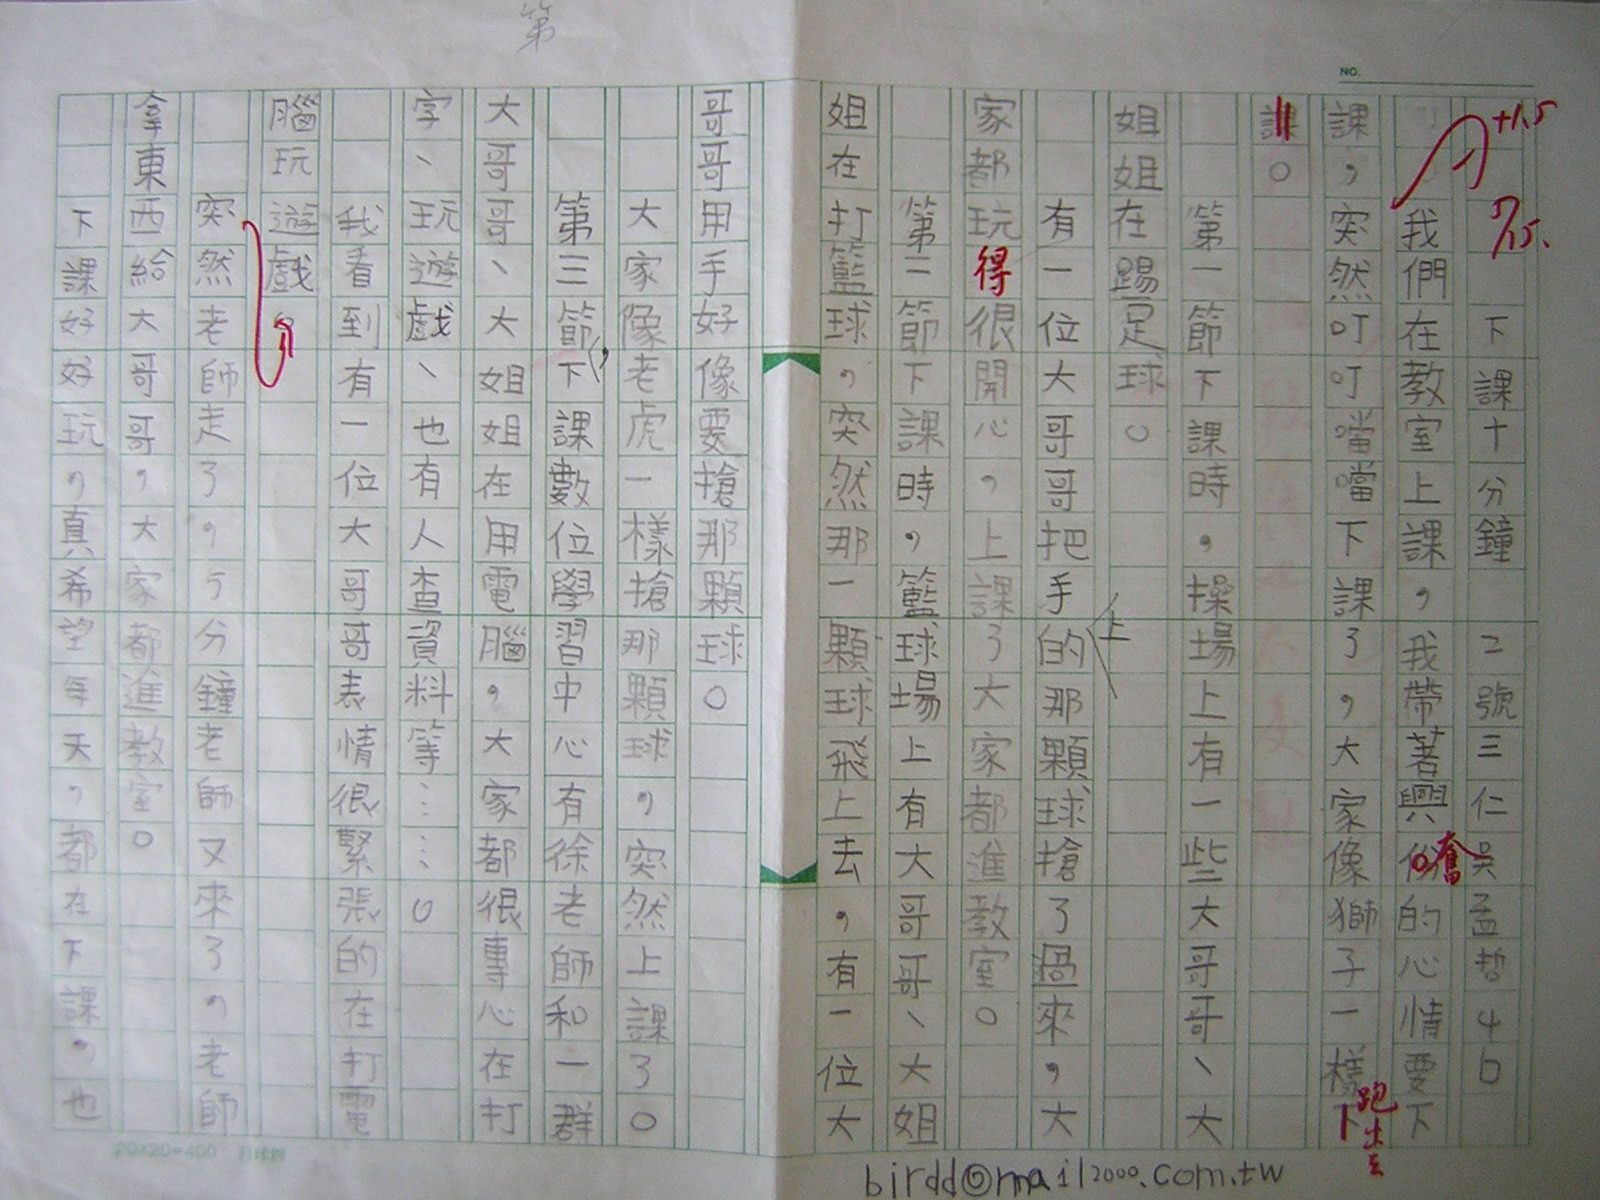 第
NO.
下課十分鐘 2號三仁吳孟哲40
+1.5
7/15.
我們在教室上課，我帶著興份的心情要下
奮
課，突然叮叮噹噹下課了，大家像獅子一樣下
跑出去
課。
第一節下課時，操場上有一些大哥哥、大
姐姐在踢足球。
有一位大哥哥把手的那顆球搶了過來，大
上
家都玩得很開心，上課了大家都進教室。
第二節下課時，籃球場上有大哥哥、大姐
姐在打籃球，突然那一顆球飛上去，有一位大
哥哥用手好像要搶那顆球。
大家像老虎一樣搶那顆球，突然上課了。
第三節，下課數位學習中心有徐老師和一群
大哥哥、大姐姐在用電腦，大家都很專心在打
字、玩遊戲、也有人查資料等……。
我看到有一位大哥哥表情很緊張的在打電
腦玩遊戲，
突然老師走了，5分鐘老師又來了，老師
拿東西給大哥哥，大家都進教室。
下課好好玩，真希望每天，都在下課，也
20X20=400
birdd@mail2000.com.tw